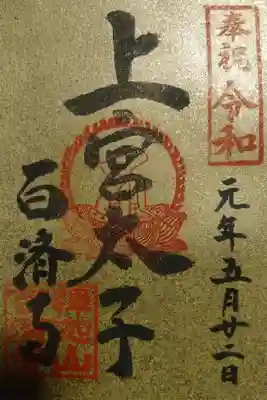 奉祝 令和
元年五月廿二日
上宮太子
百済寺